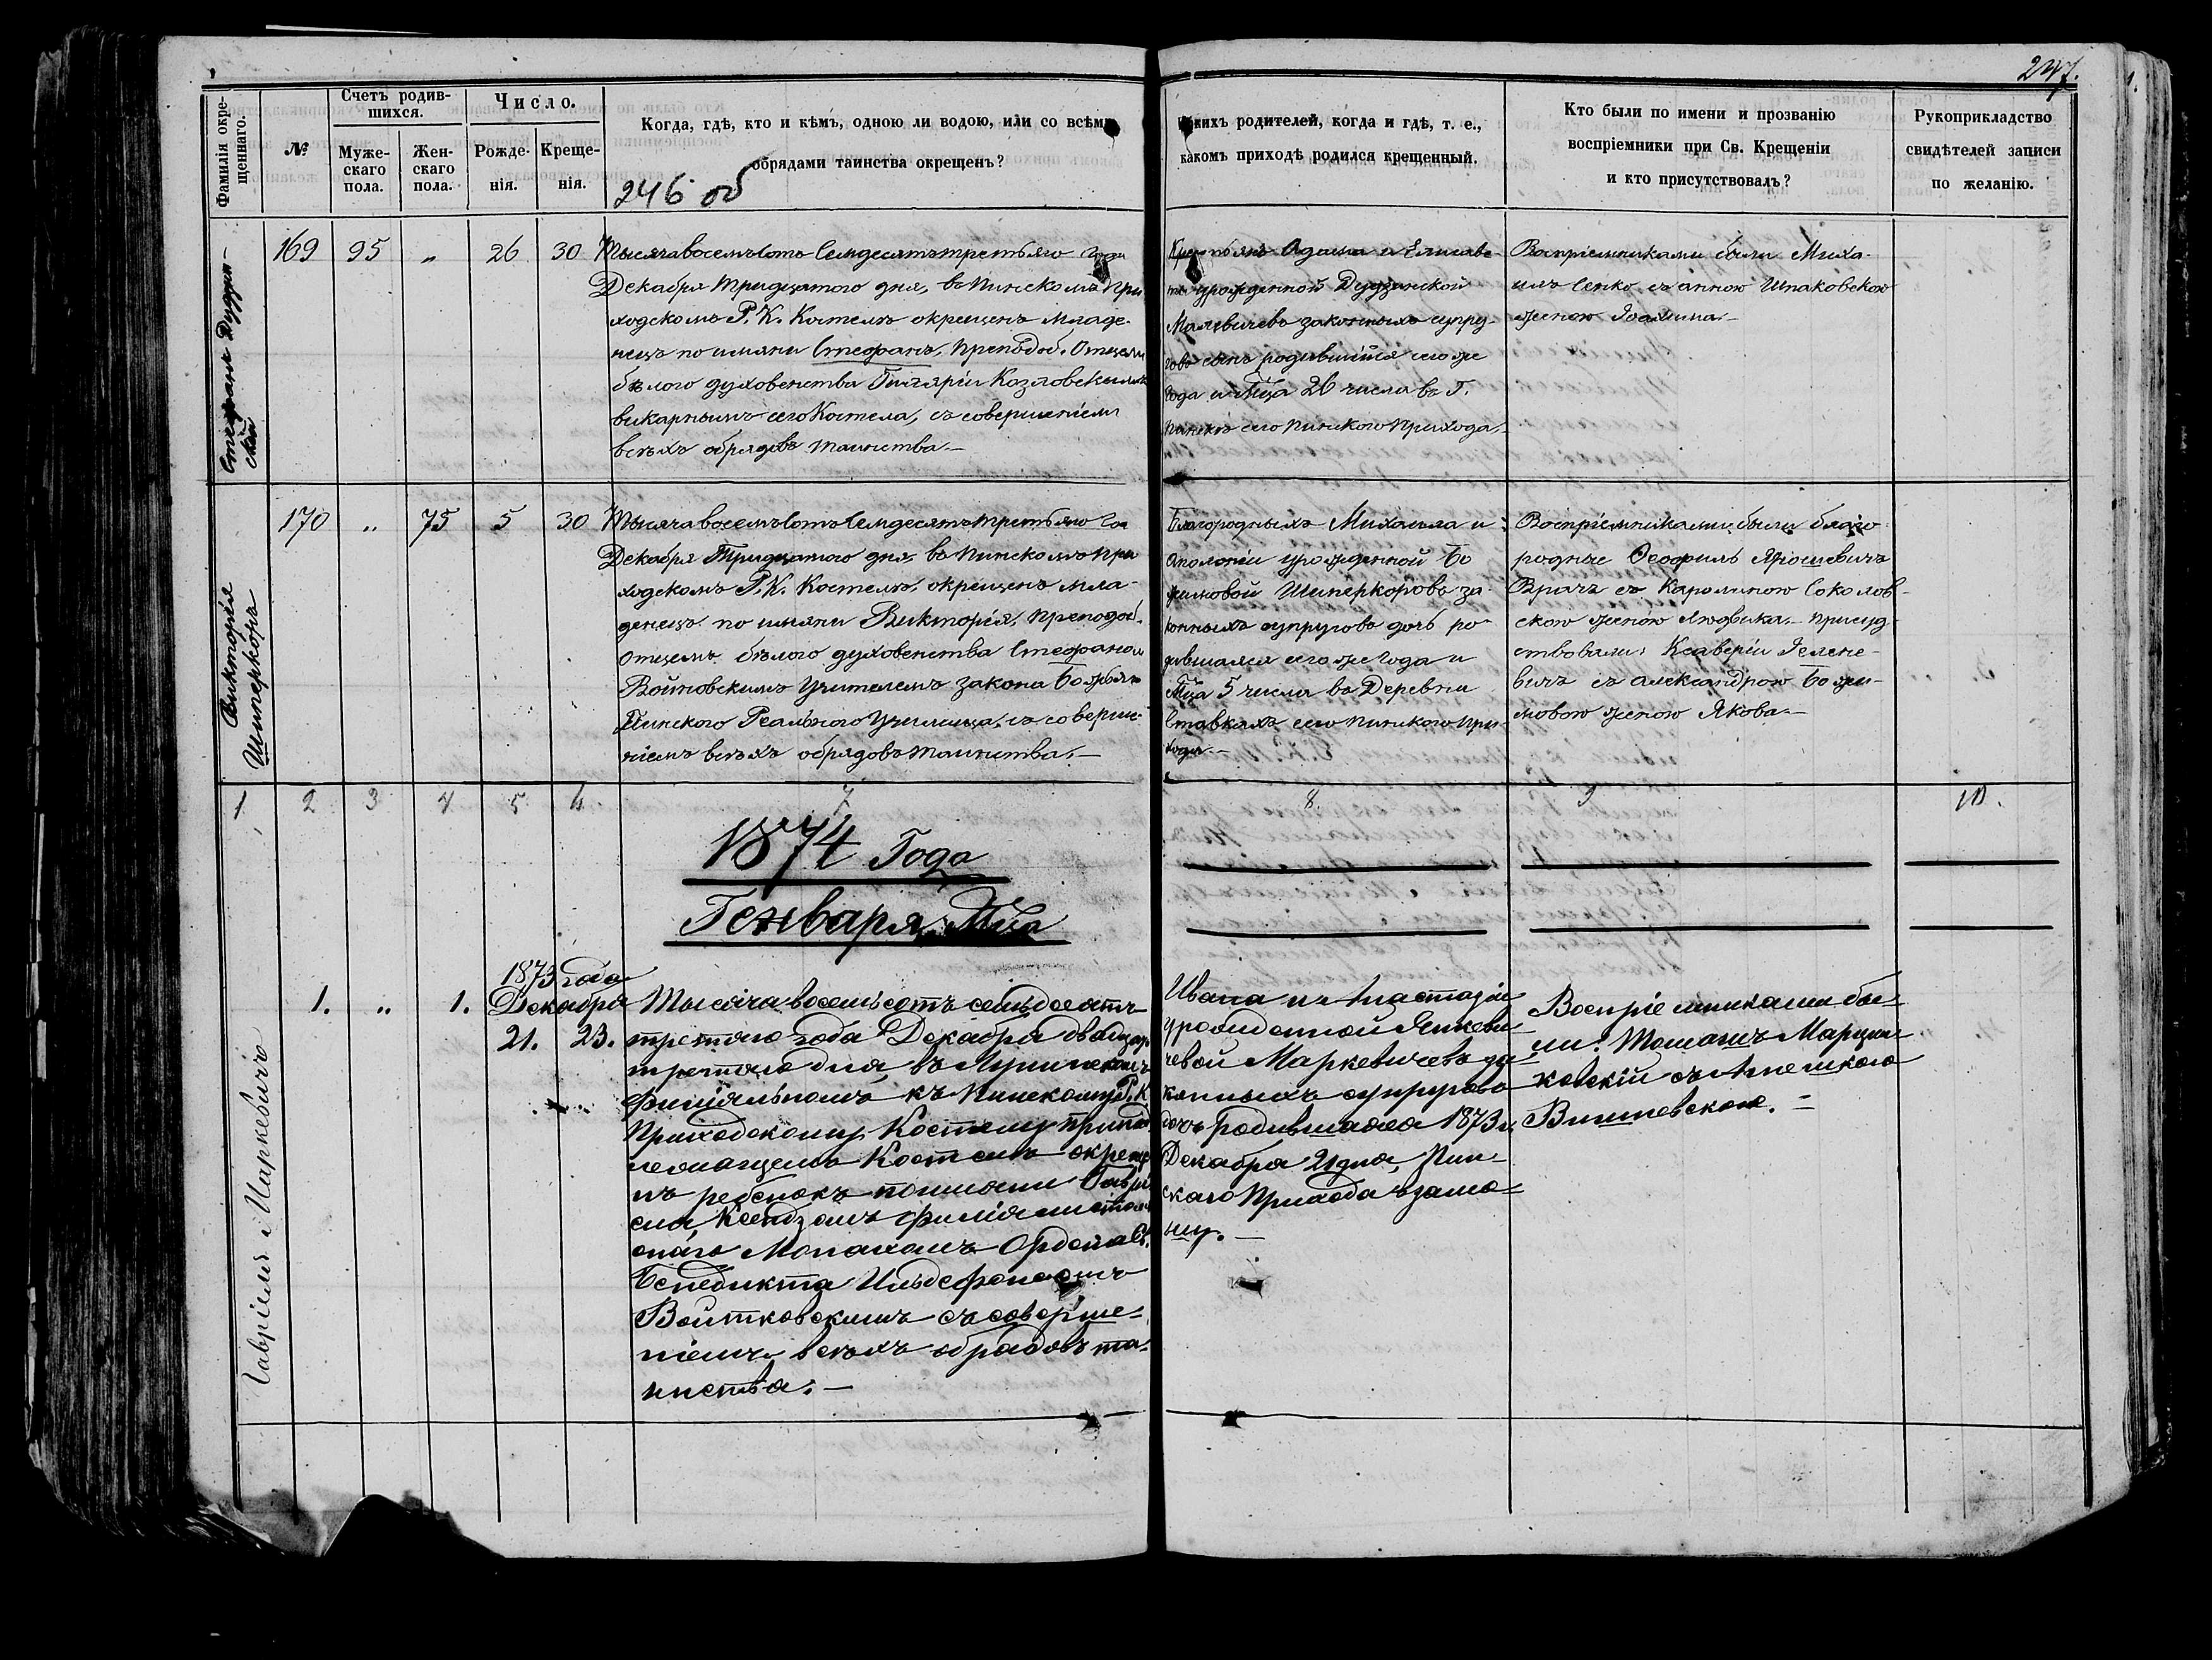 247.
Фамилія окре-
щеннаго.
№
Счетъ родив-
шихся.
Муже-
скаго
пола.
Жен-
скаго
пола.
Число.
Рожде-
нія.
Креще-
нія.
Когда, гдѣ, кто и кѣмъ, одною ли водою, или со всѣми
обрядами таинства окрещенъ?
246 об
какихъ родителей, когда и гдѣ, т. е.,
какомъ приходѣ родился крещенный.
Кто были по имени и прозванію
воспріемники при Св. Крещеніи
и кто присутствовалъ?
Рукоприкладство
свидѣтелей записи
по желанію.
Стефанъ
169 95 „ 26 30
Тысяча восемьсотъ Семдесятъ третьяго года
Декабря тридцатого дня, въ Пинскомъ При
ходскомъ Р. К. Костелѣ окрещенъ младе-
нецъ по имяни Стефанъ, преподоб. Отцемъ
бѣлого духовенства Гиляріи Козловскимъ
викарнымъ сего Костела, съ совершеніемъ
всѣхъ обрядовъ таинства.—
Крестьянъ Адама и Елисаве-
ты урожденной Дудзинской
законныхъ супру-
говъ сынъ родившійся сего же
года и Мѣца 26 числа въ Г.
Пинскѣ сего Пинского прихода.—
Воспріемниками были Миха-
илъ Сенко съ Анною Шпаковскою
женою Іоахима.—
Викторія
Шнперкоръ
170 „ 75 5 30
Тысяча восемьсотъ Семдесятъ третьяго Го
Декабря Тридцатого дня, въ Пинскомъ При
ходскомъ Р. К. Костелѣ, окрещенъ мла-
денецъ по имяни Викторія, преподоб.
Отцемъ бѣлого духовенства Стефаномъ
Войтовскимъ Учителемъ закона Божьяго
Пинского Реального Училища, съ соверше-
ніемъ всѣхъ обрядовъ таинства.—
Благородныхъ Михаила и
Аполоніи урожденной Бо
жимовой Шнперкоровъ за-
конныхъ супруговъ дочь ро-
дившаяся сего же года и
Мѣца 5 числа въ Деревни
Ставкахъ сего Пинского при
хода.—
Воспріемниками были благо
родные Ѳеофилъ Ярошевичъ
Врачъ съ Каролиною Соколов-
скою женою Людвика.— Присуд-
ствовали: Ксаверіи Гелене-
вичъ съ Александрою Божи-
мовою женою Якова.—
1 2 3 4 5 6. 7 8. 9 10.
1874 Года
Генваря Мѣца
Гавріилъ Маркевичъ
1. „ 1.
1873 года
Декабря
21. 23.
Тысяча восемьсотъ семьдесятъ
третяго года Декабря двадцать
третяго дня, въ
филіяльномъ къ Пинскому Р. К
Приходскому Костелу принад
лежащемъ Костелѣ окреще
нъ ребенокъ по имени Гаврі
елъ, Ксендзомъ филіялистомъ
онаго Монахомъ Ордена Св.
Бенедикта Ильдефонсомъ
Войтковскимъ съ соверше-
ніемъ всѣхъ обрядовъ та-
инства.—
Ивана и Анастазіи
урожденной Янкеви
чевой Маркевичевъ за
конныхъ супруговъ
дочь родившаяся 1873 г.
Декабря 21 дня, Пин-
скаго Прихода
Воспріемниками бы-
ли: Томашъ Марцин-
ковскій съ Агнешкою
Вишневскою. =